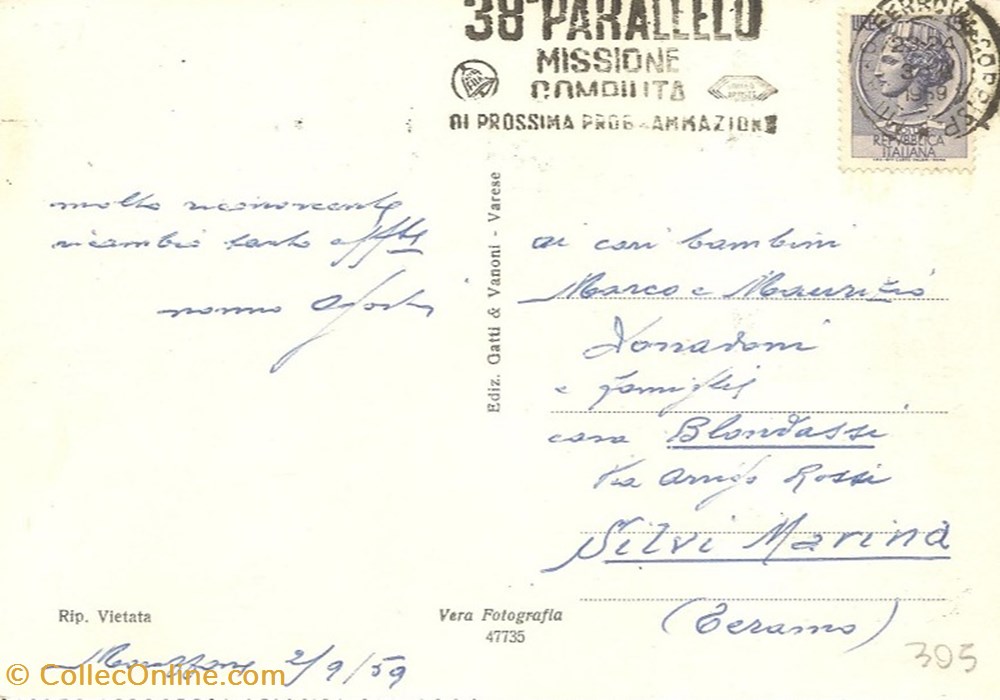 38° PARALLELO
MISSIONE
COMPIUTA
DI PROSSIMA PROGRAMMAZIONE
LIRE
FERROVIA
CORRISP
23-24
1959
REPVBBLICA
ITALIANA
molto riconoscente
ricambio tanto affetto
nonno
Ediz. Gatti & Vanoni - Varese
ai cari bambini
Marco e Maurizio
Donadoni
e famiglia
casa Blondassi
Via Arrigo Rossi
Silvi Marina
(Teramo)
Rip. Vietata
Vera Fotografia
47735
2/9/59
395
© CollecOnline.com